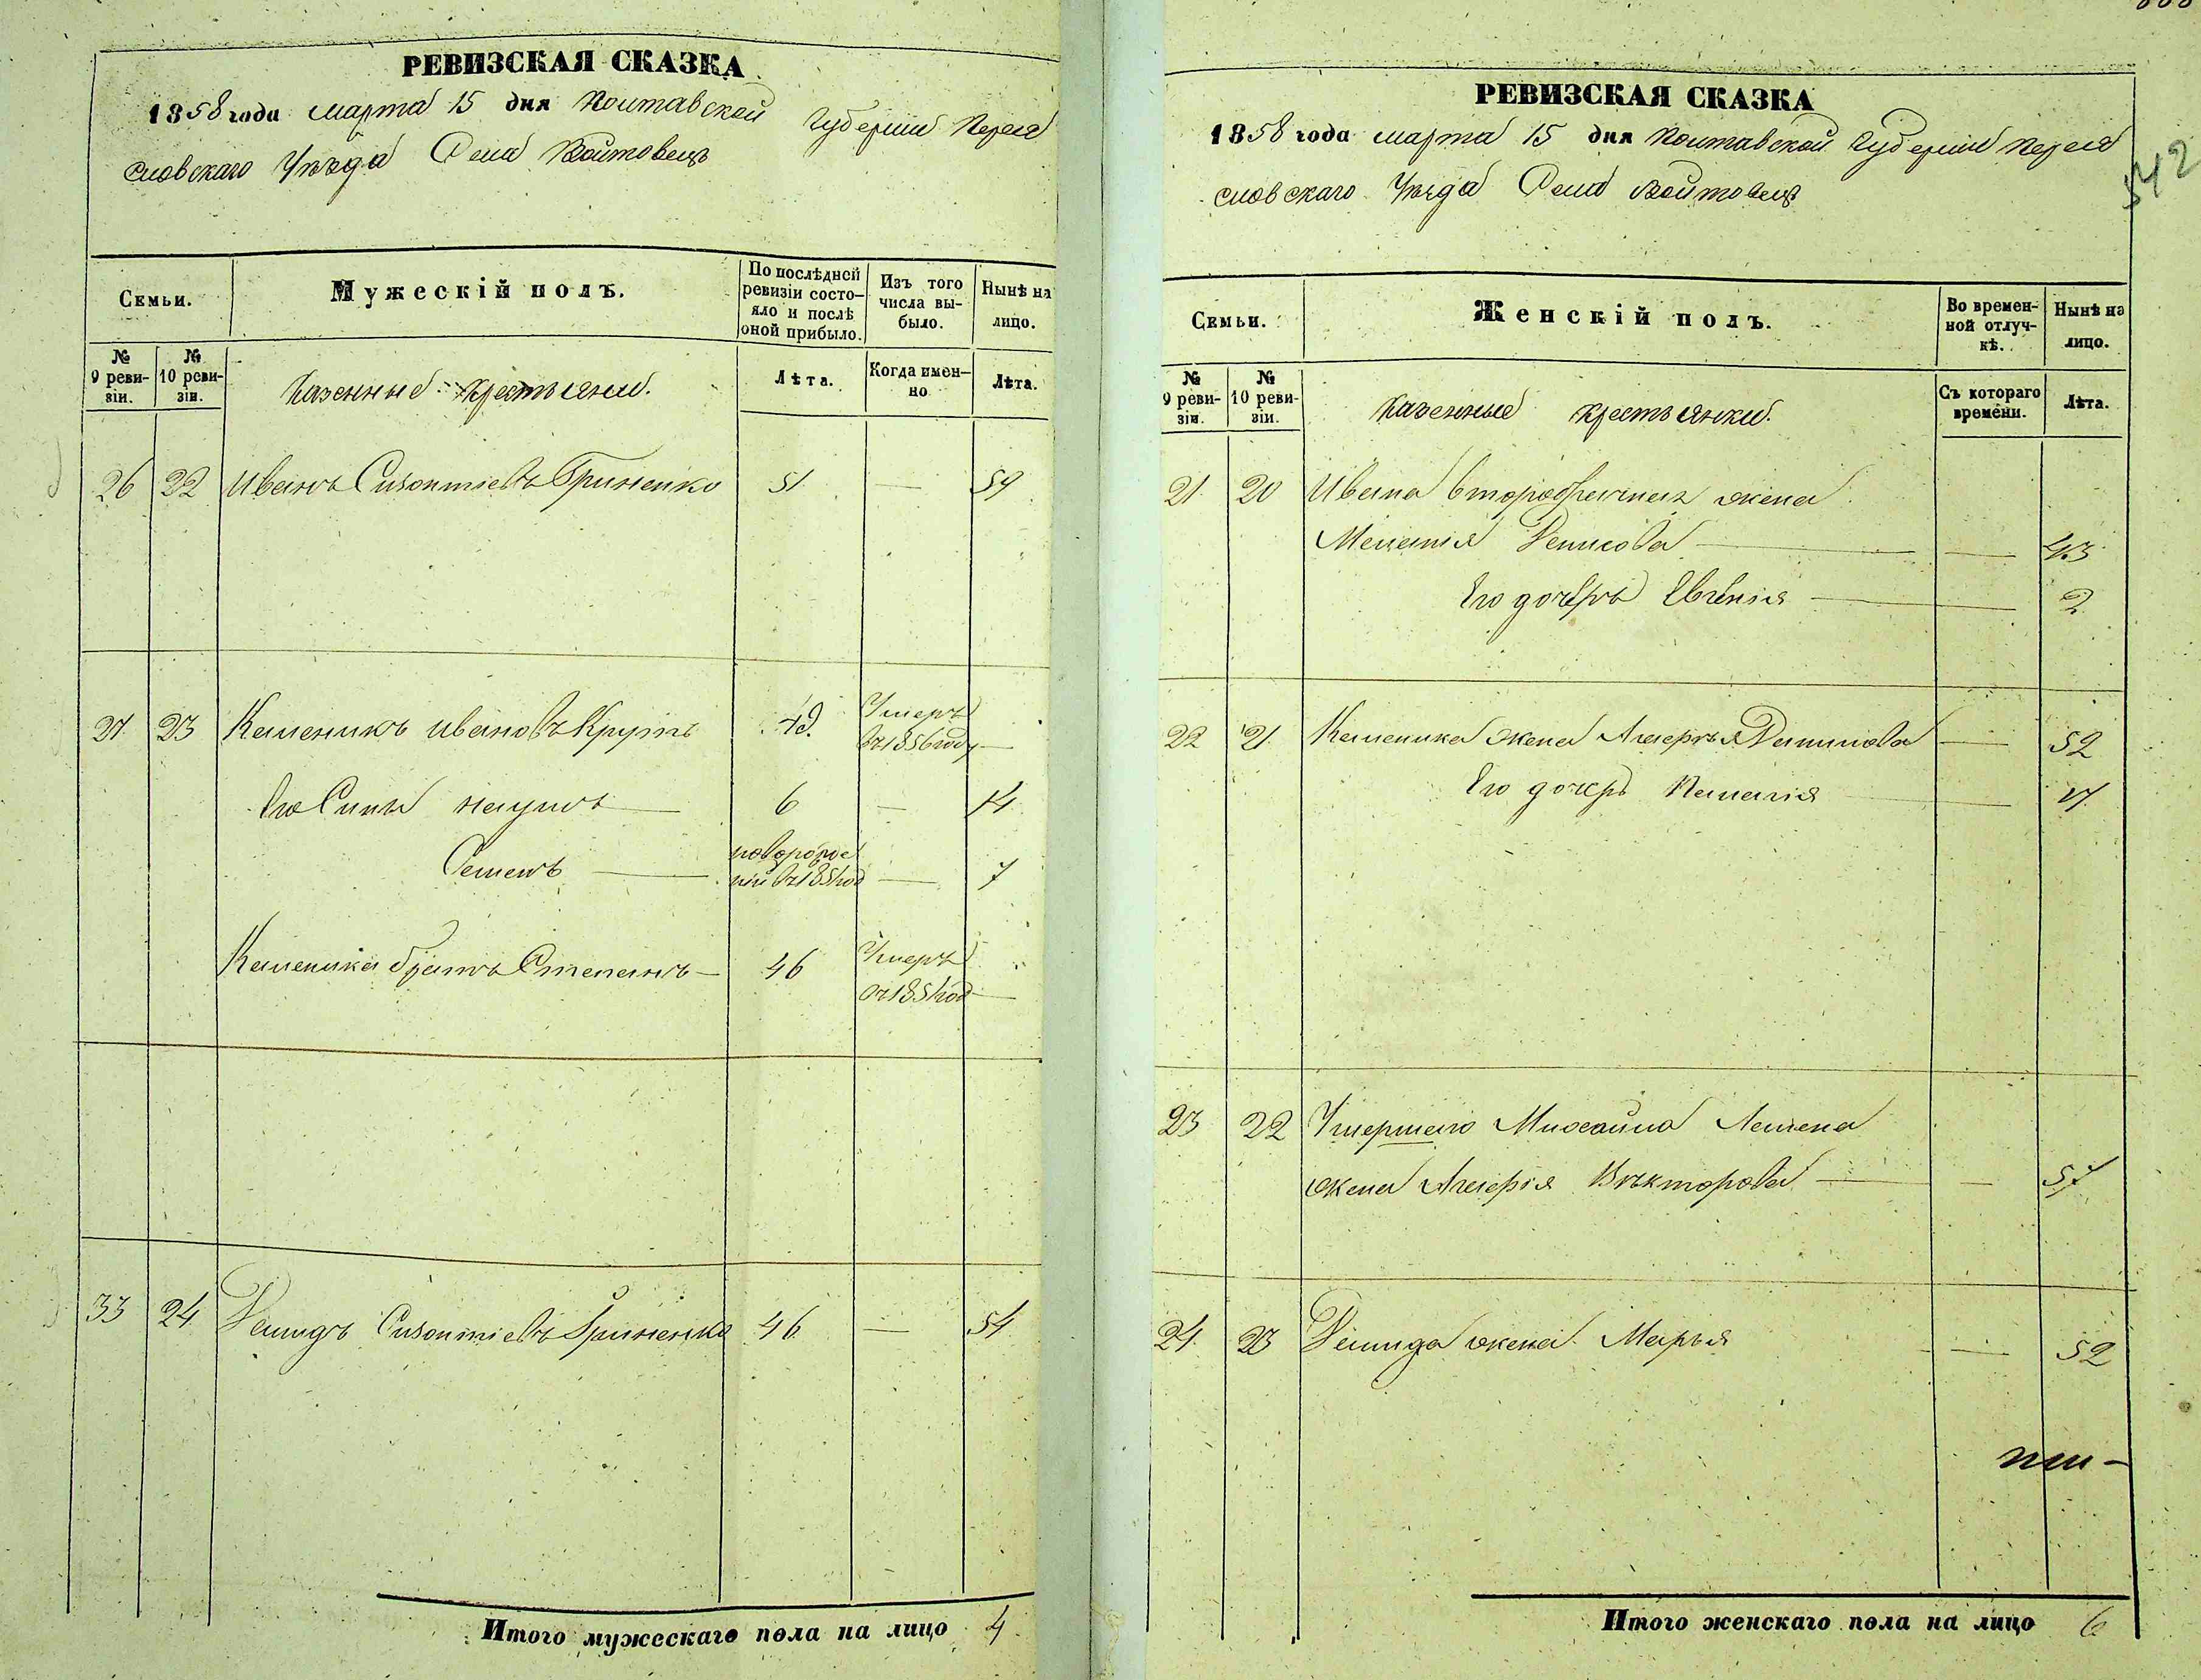 РЕВИЗСКАЯ СКАЗКА
1858 года марта 15 дня Полтавской Губернии Перея
словскаго Уѣзда Села Войтовецъ
Семьи.
Мужескій полъ.
По послѣдней ревизіи состо-
яло и послѣ оной прибыло.
Изъ того числа вы-
было.
Нынѣ на лицо.
№ 9 реви-
зіи.
№ 10 реви-
зіи.
Казенные крестьяни.
Лѣта.
Когда имен-
но
Лѣта.
26 22 Иванъ Сизонтіевъ Гриненко 51 — 59
27 23 Каленикъ Ивановъ Крутъ 49. Умеръ
въ 1856 году —
Его Сины Наумъ — 6 — 14
Семенъ — новорожде
ній въ 1851 год — 7
Каленика братъ Степанъ — 46 Умеръ
въ 1851 год —
33 24 Демидъ Сизонтіевъ Гриненко 46 — 54
Итого мужескаго пола на лицо 4
РЕВИЗСКАЯ СКАЗКА
1858 года марта 15 дня Полтавской Губернии Перея
словскаго Уѣзда Села Войтовецъ
542
Семьи.
Женскій полъ.
Во времен-
ной отлуч-
кѣ.
Нынѣ на лицо.
№ 9 реви-
зіи.
№ 10 реви-
зіи.
Казенные крестьянки.
Съ котораго времени.
Лѣта.
21 20 Ивана второбрачная жена
Меланія Денисова — — 43
Его дочерь Евгенія — — 2
22 21 Каленика жена Гликерія Данилова — 52
Его дочерь Пелагія — 17
23 22 Умершаго Михайла Лещена
жена Гликерія Викторова — — 57
24 23 Демида жена Марья — 52
Итого женскаго пола на лицо 6